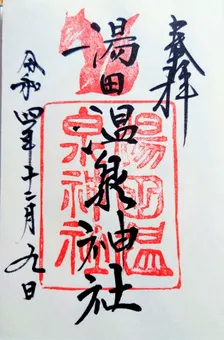 奉拝
湯田温泉神社
湯田温泉神社
令和四年十二月九日